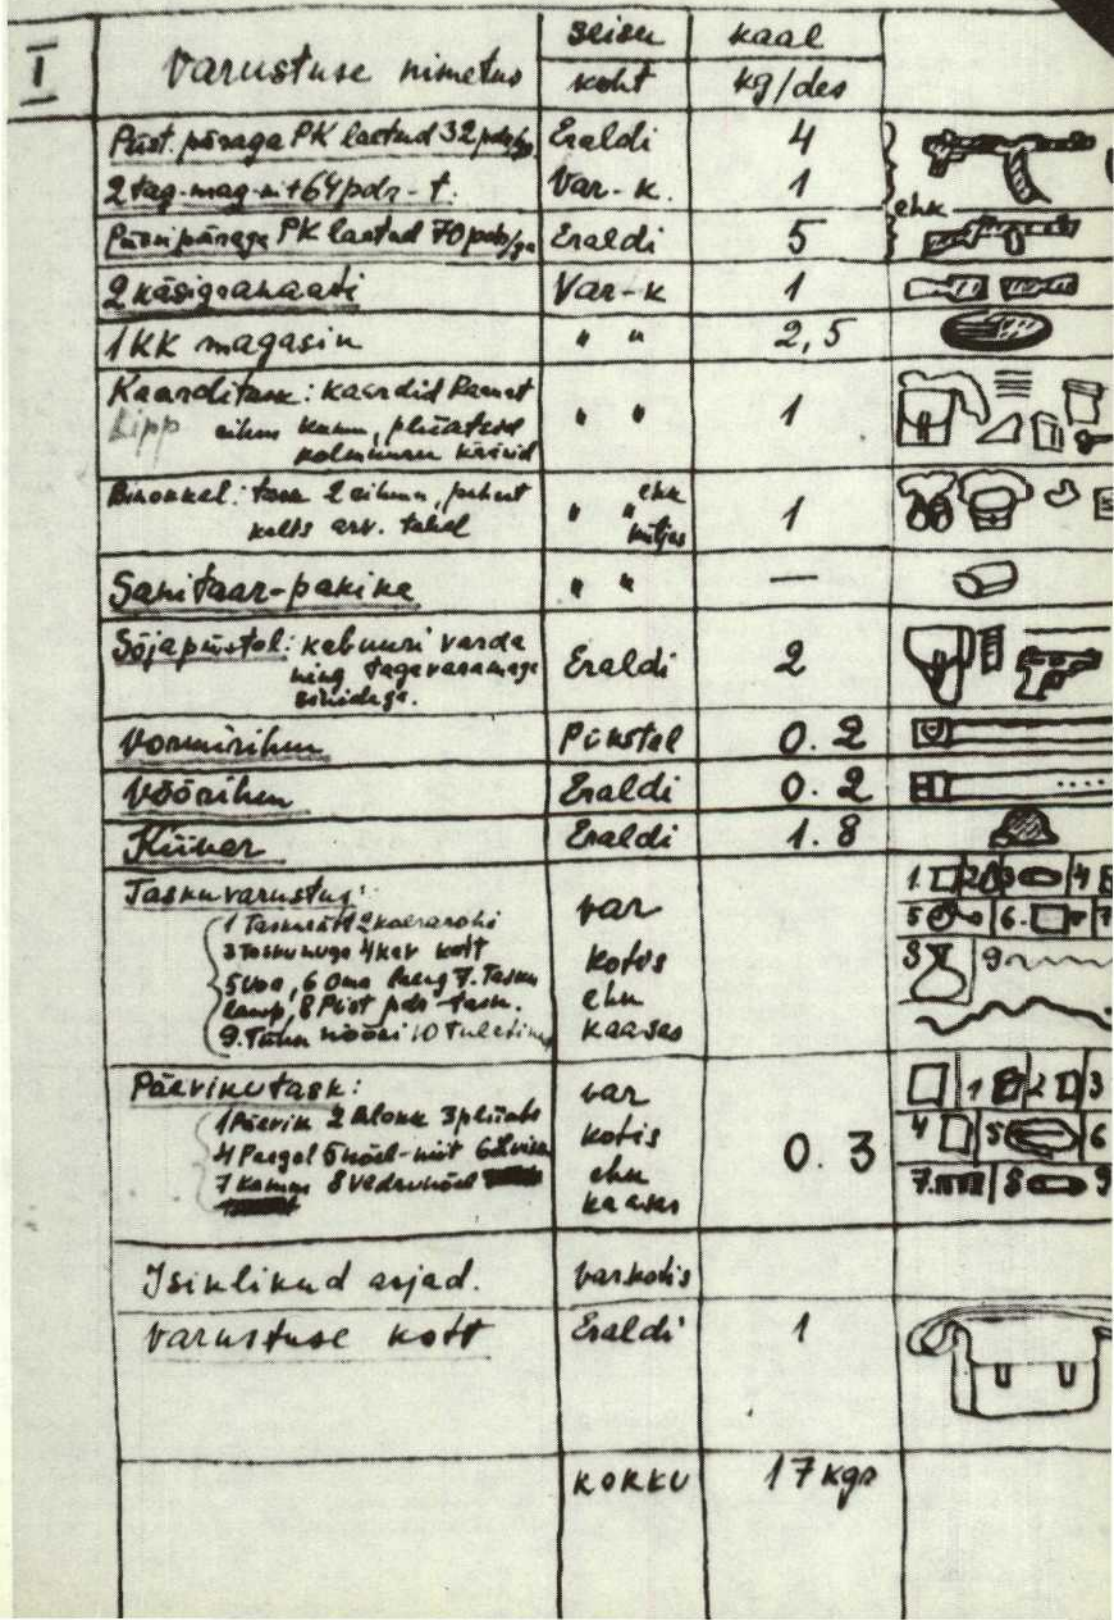 I
Varustuse nimetus
seisu
koht
kaal
kg/des
Püst. päraga PK laetud 32 Eraldi 4
2 tag-mag-nit 64 pdr-t. Var-k. 1
ehk
PK laetud 70 Eraldi 5
2 käsigranaati Var-k 1
1 KK magasin " " 2,5
Kaarditask: kaardid
Lipp rihm kumm, pliiatsid " " 1
Binokkel: task 2 rihma, ehk
" " 1
arv. tahel
Sanitaar-pakike " " —
Sõjapüstol: kabuuri varda
ning tagavaramaga Eraldi 2
Vormirihm Pükstel 0.2
Vöörihm Eraldi 0.2
Kiiver Eraldi 1.8
Taskuvarustus:
1 Taskurätt 2
3 Taskunuga 4 kott
5 , 6 Oma 7. Tasku
lamp, 8 Püst pdr task.
9. nööri 10
var
kotis
ehk
kaasas
1. 2 3 4
5 6. 7
8 9
Päevikutask:
1 Päevik 2 Blokk 3 pliiats
4 Peegel 5 nõel-niit 6
7 kamm 8
var
kotis
ehk
kaasas
0.3
1 2 3
4 5 6
7. 8 9
Isiklikud asjad. varkotis
Varustuse kott Eraldi 1
KOKKU 17 kgr